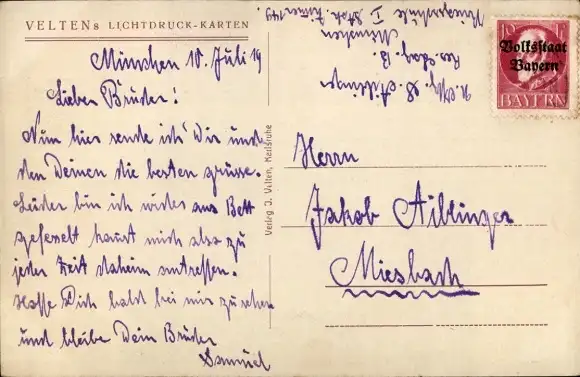 VELTENS LICHTDRUCK-KARTEN
München 10. Juli 19
Lieber Bruder!
Von hier sende ich Dir und
den Deinen die besten Grüsse.
Leider bin ich wieder ans Bett
gefesselt kannst mich also zu
jeder Zeit daheim antreffen.
Hoffe Dich bald bei mir zu sehen
und bleibe Dein Bruder
Samuel
Verlag J. Velten, Karlsruhe
S. Aiblinger
Res. Laz. B.
München
I. Stock, Zimmer
Volksstaat
Bayern
BAYERN
Herrn
Jakob Aiblinger
Miesbach